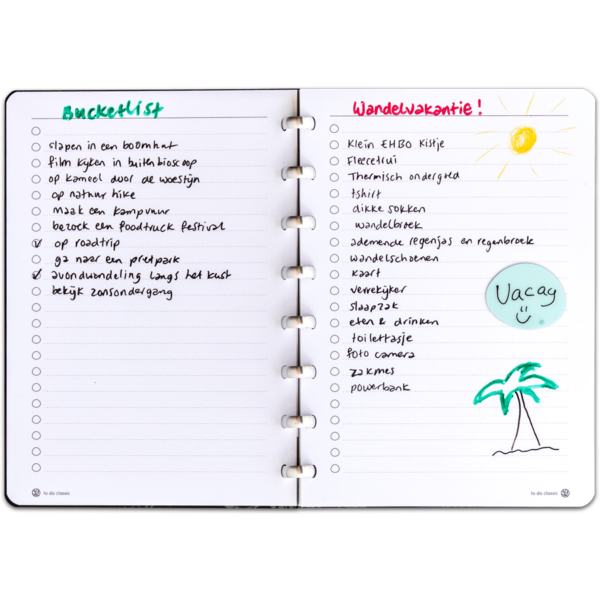 Bucketlist
slapen in een boomhut
film kijken in buitenbioscoop
op kameel door de woestijn
op natuur hike
maak een kampvuur
bezoek een foodtruck festival
op roadtrip
ga naar een pretpark
avondwandeling langs het kust
bekijk zonsondergang
to do classic
Wandelvakantie!
Klein EHBO Kistje
Fleecetrui
Thermisch ondergoed
tshirt
dikke sokken
wandelbroek
ademende regenjas en regenbroek
wandelschoenen
kaart
verrekijker
slaapzak
eten & drinken
toilettasje
foto camera
zakmes
powerbank
Vacay
to do classic